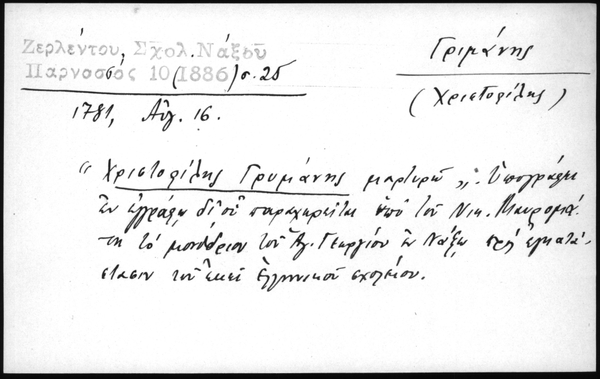 Ζερλέντου, Σχολ. Νάξου
Παρνασσός 10 (1886) σ. 25
Γριμάνης
(Χριστοφίλης)
1781, Αὔγ. 16.
"Χριστοφίλης Γρυμάνης μαρτυρῶ„. Ὑπογράφει
ἐν ἐγγράφῳ δι' οὗ παραχωρεῖται ὑπὸ τοῦ Νικ. Μαυρομμά-
τη τὸ μονύδριον τοῦ Ἁγ. Γεωργίου ἐν Νάξῳ πρὸς ἐγκατά-
στασιν τοῦ ἐκεῖ ἑλληνικοῦ σχολείου.